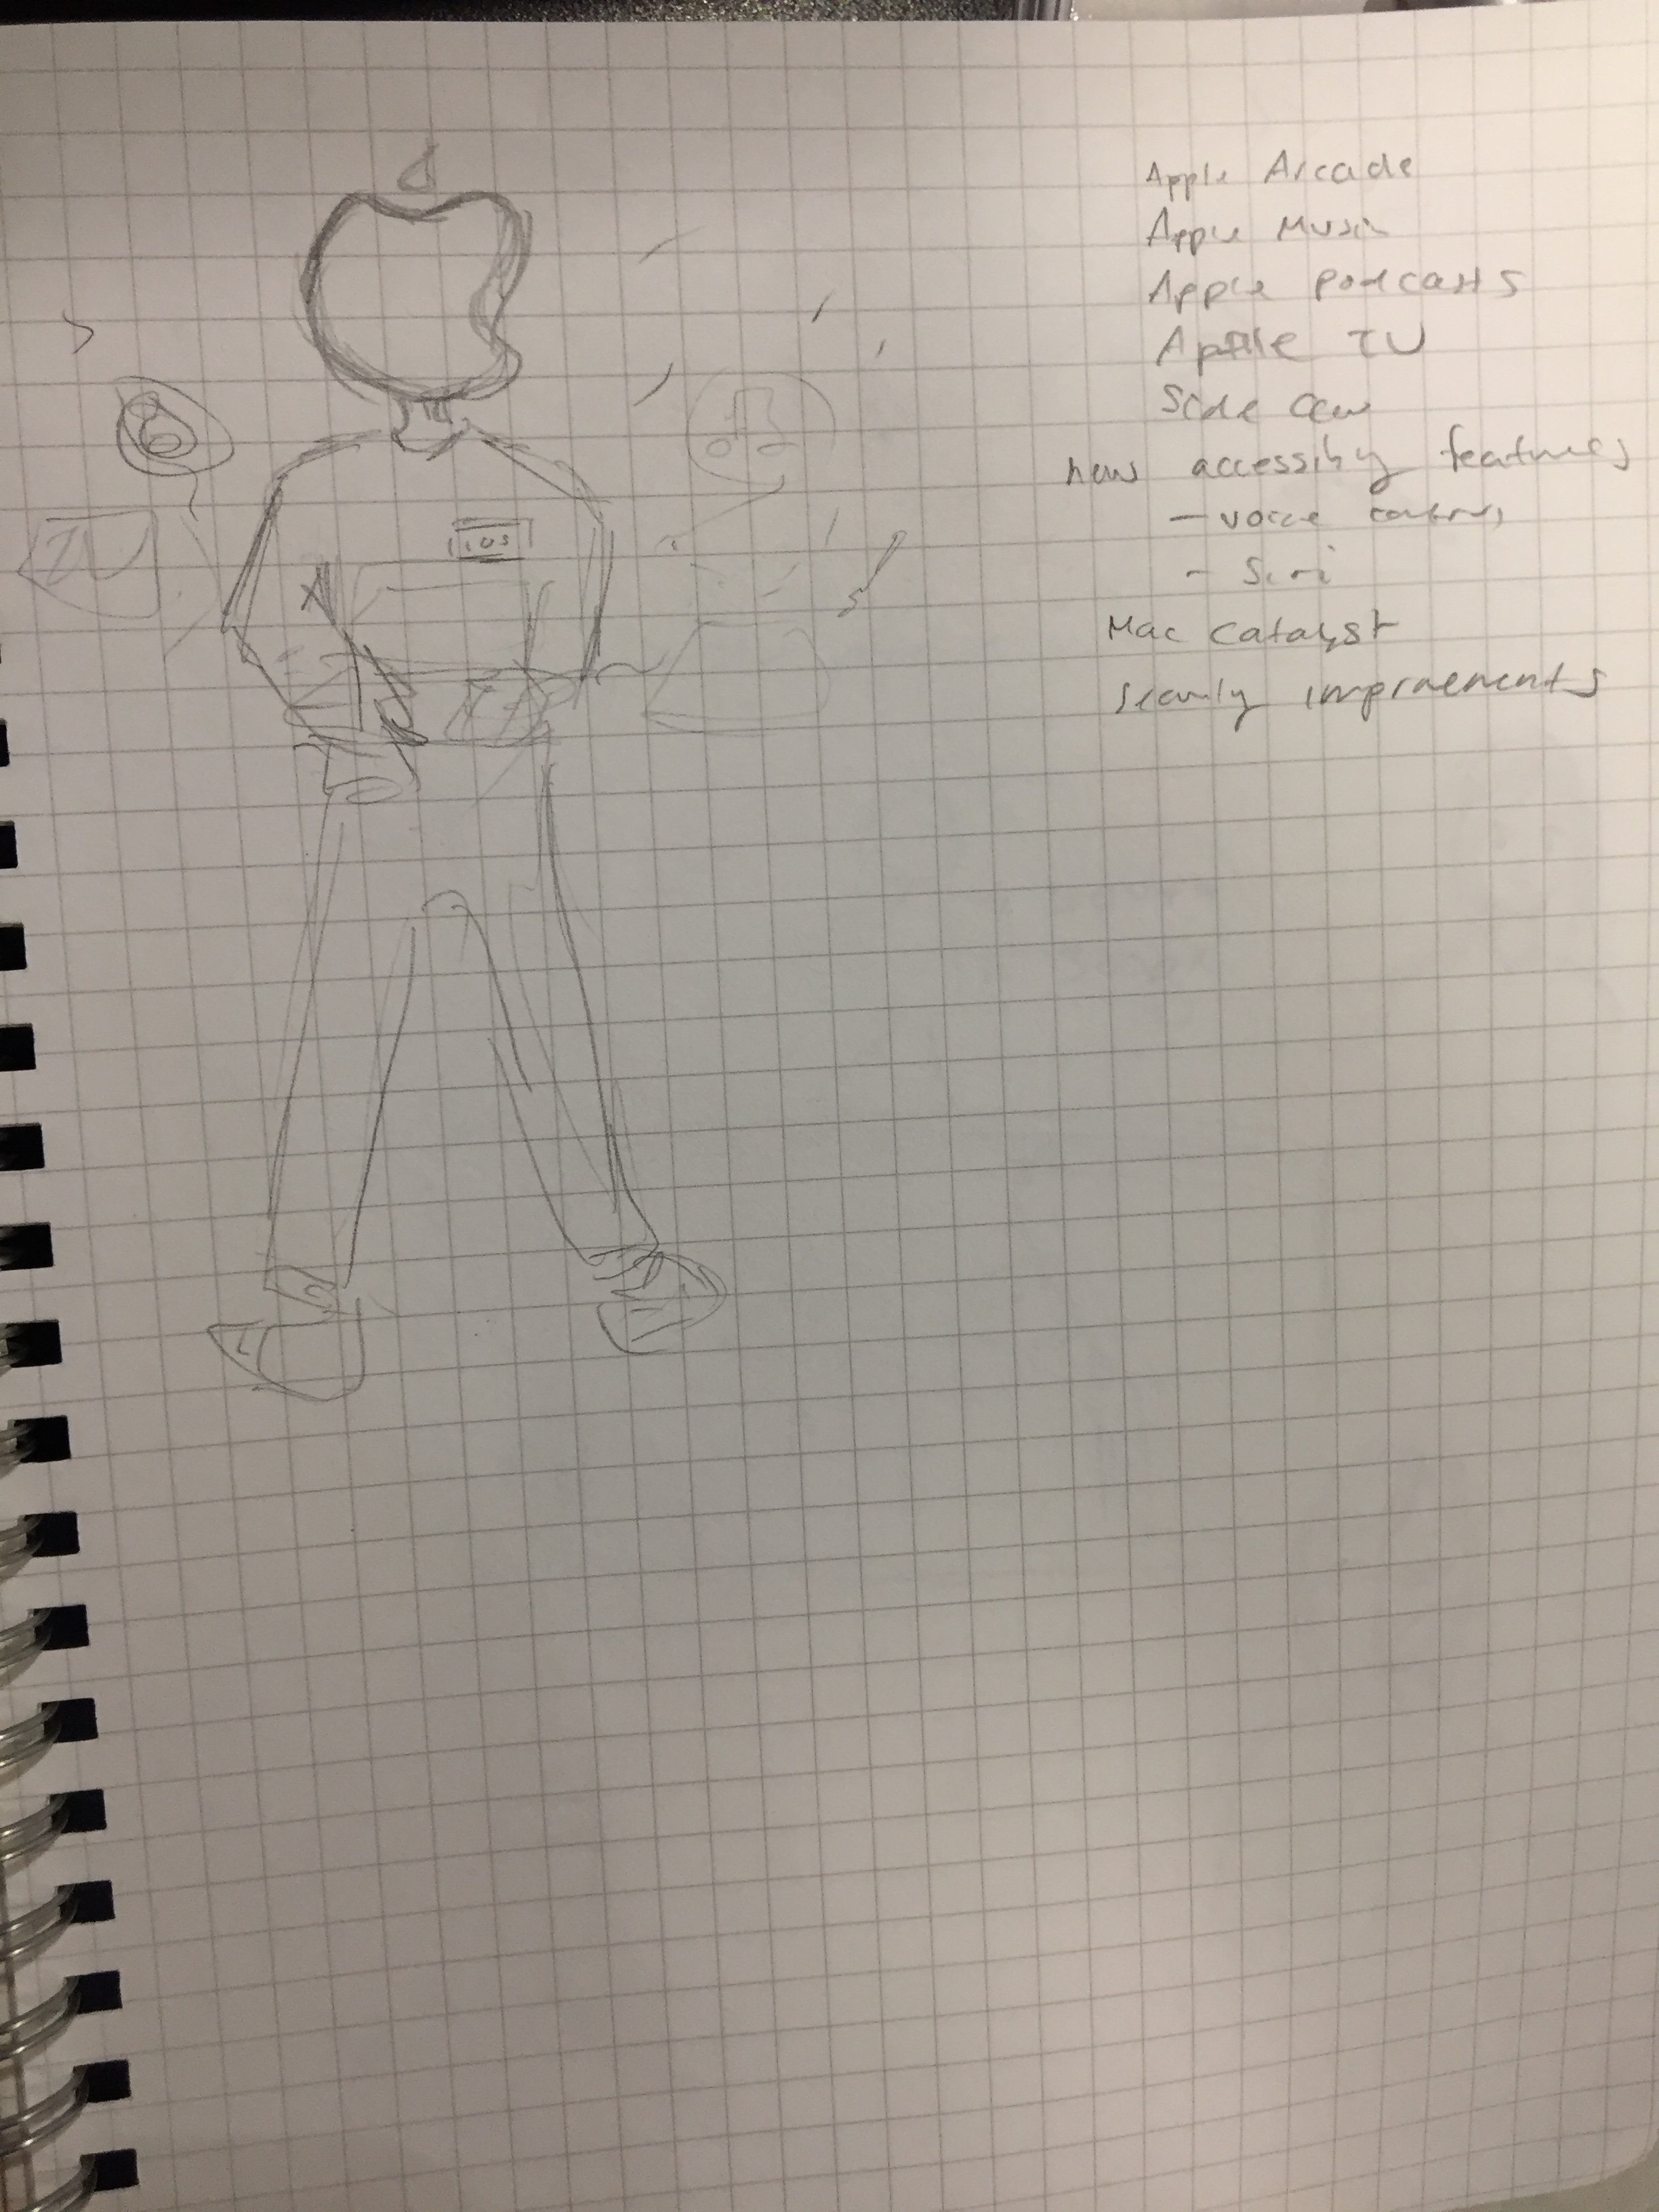 Apple Arcade
Apple Music
Apple Podcasts
Apple TV
Side Car
new accessibly features
- voice control
- Siri
Mac Catalyst
Security improvements
TV
iOS